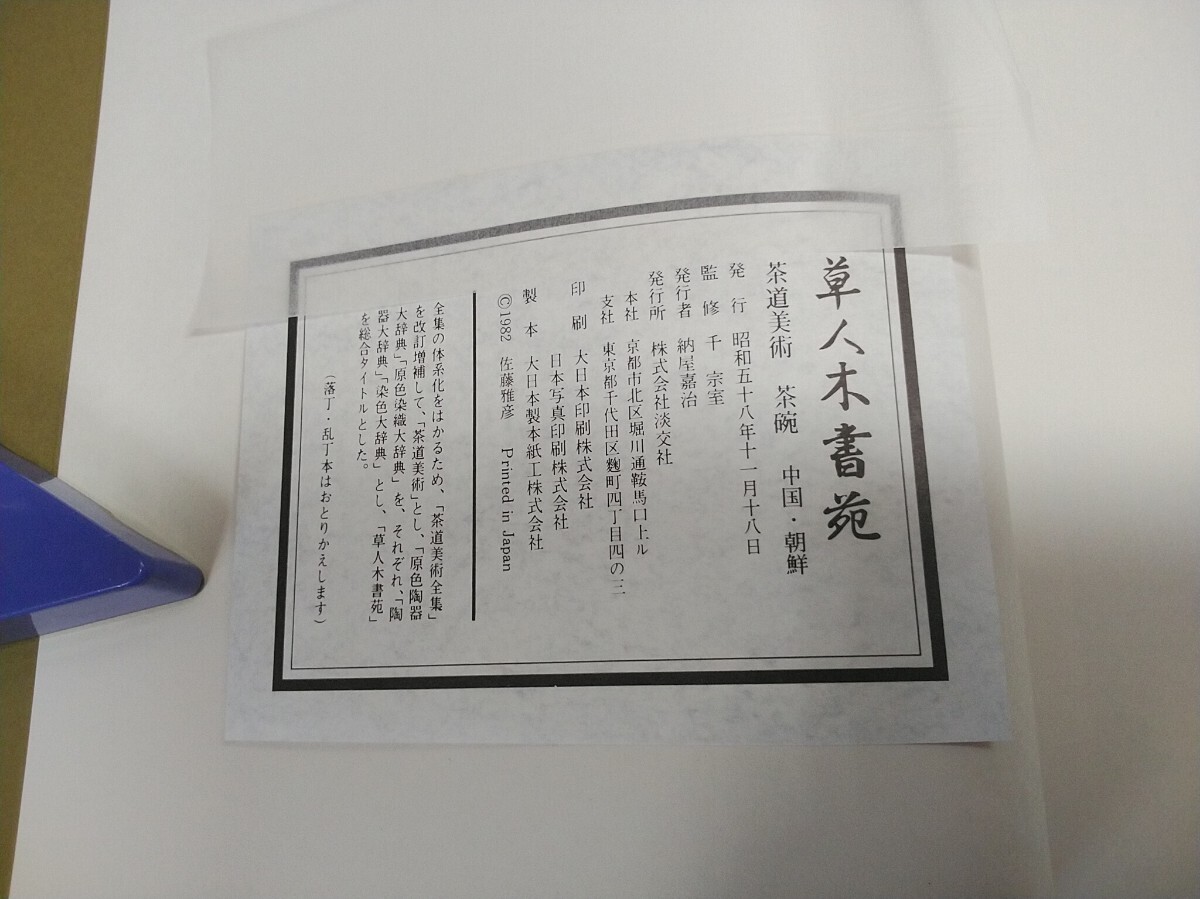 草人木書苑
茶道美術　茶碗　中国・朝鮮
発行　昭和五十八年十一月十八日
監修　千　宗室
発行者　納屋嘉治
発行所　株式会社淡交社
本社　京都市北区堀川通鞍馬口上ル
支社　東京都千代田区麴町四丁目四の三
印刷　大日本印刷株式会社
日本写真印刷株式会社
製本　大日本製本紙工株式会社
©1982　佐藤雅彦　Printed in Japan
全集の体系化をはかるため、「茶道美術全集」
を改訂増補して、「茶道美術」とし、「原色陶器
大辞典」「原色染織大辞典」を、それぞれ、「陶
器大辞典」「染色大辞典」とし、「草人木書苑」
を総合タイトルとした。
（落丁・乱丁本はおとりかえします）